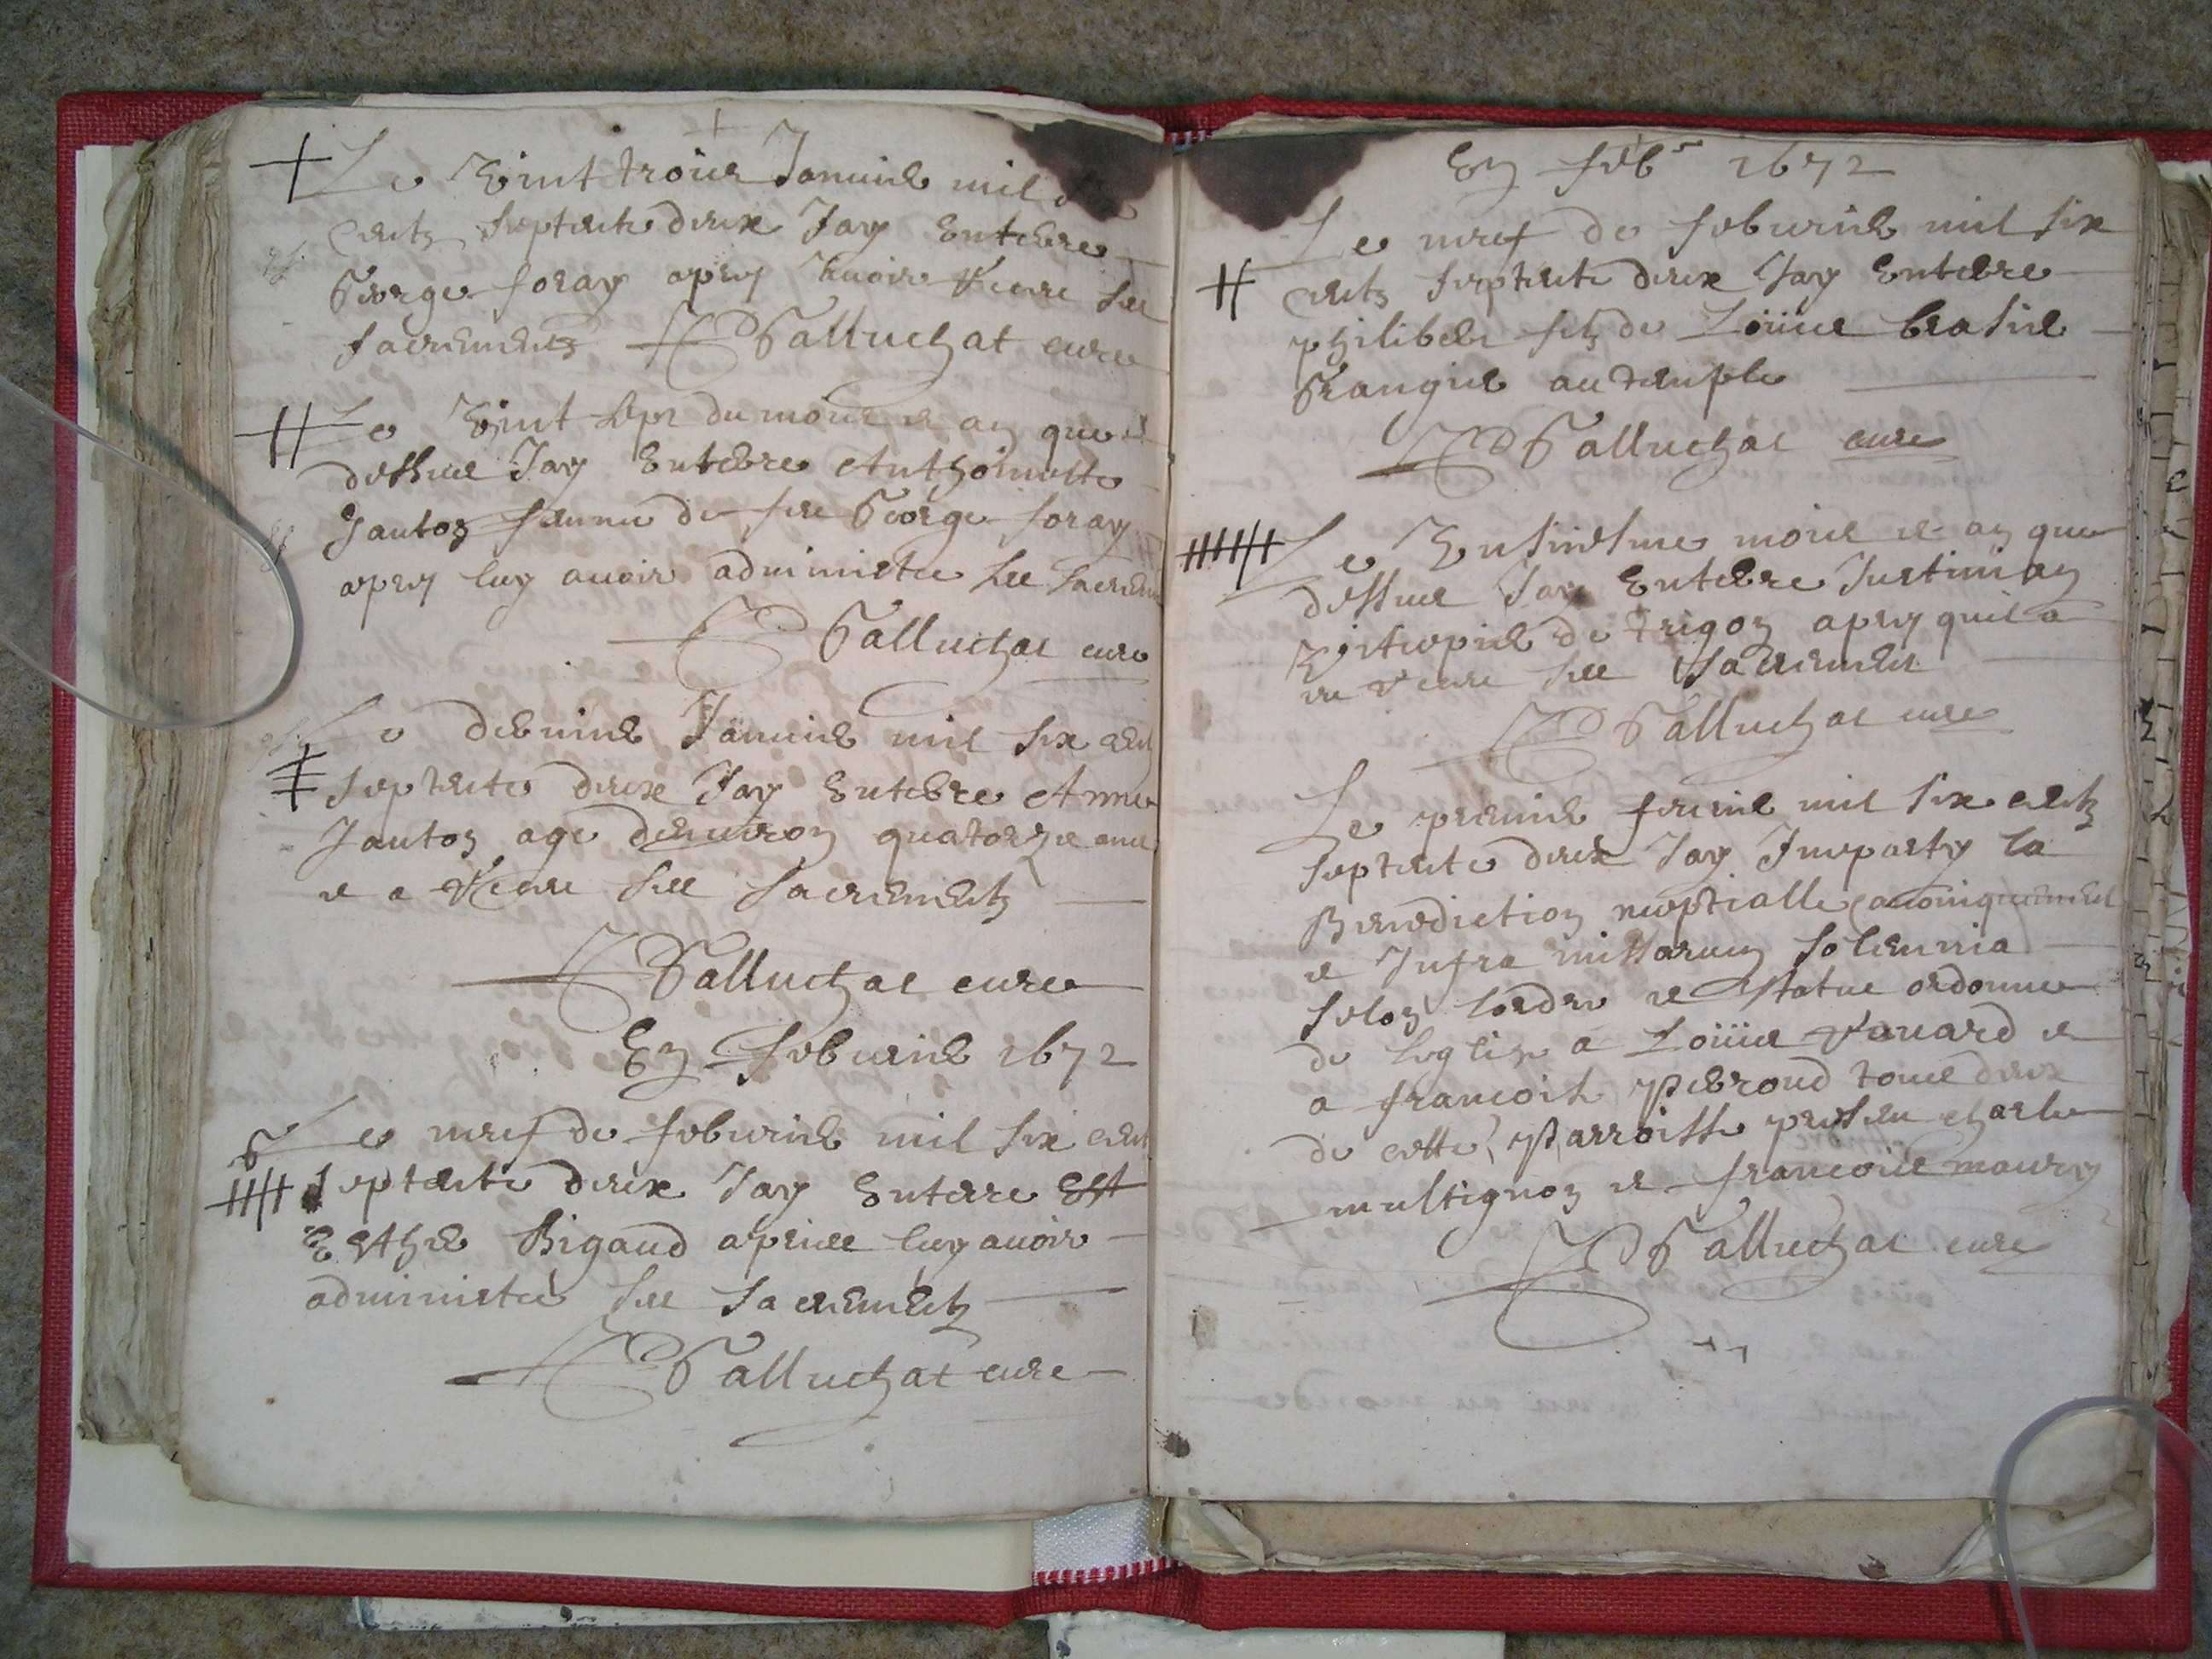 Le vint trois Januier mil
cents septente deux Jay Enterre
George foray apres auoir Receu ses
sacrements Galluchat cure
Le vint sept du mois et an que
dessus Jay Enterre Anthoinette
Janton femme de feu George foray
apres luy auoir administre ses sacrem
Galluchat cure
Le dernier Januier mil six cent
septente deux Jay Enterre Anne
Janton age denuiron quatorze ans
et a Receu ses sacrements
Galluchat cure
En feburier 1672
Le neuf de feburier mil six cent
septente deux Jay Enterre Est
Esther Rigaud apres luy auoir
administre ses sacrements
Galluchat cure
En feb^r 1672
Le neuf de feburier mil six
cents septente deux Jay Enterre
philibert filz de Loüis
granger au temple
Galluchat cure
Le mois et an que
dessus Jay Enterre Justinian
de trigon apres quil a
eu Receu ses sacrements
Galluchat cure
Le premier feurier mil six cents
septente deux Jay Imparty la
Benediction nuptialle canoniquement
et Infra missarum solemnia
selon lordre et statue ordonne
de leglize a Loüis Rauard et
a francoise Perroud tous deux
de cette Parroisse present charle
multignon et francois maury
Galluchat cure